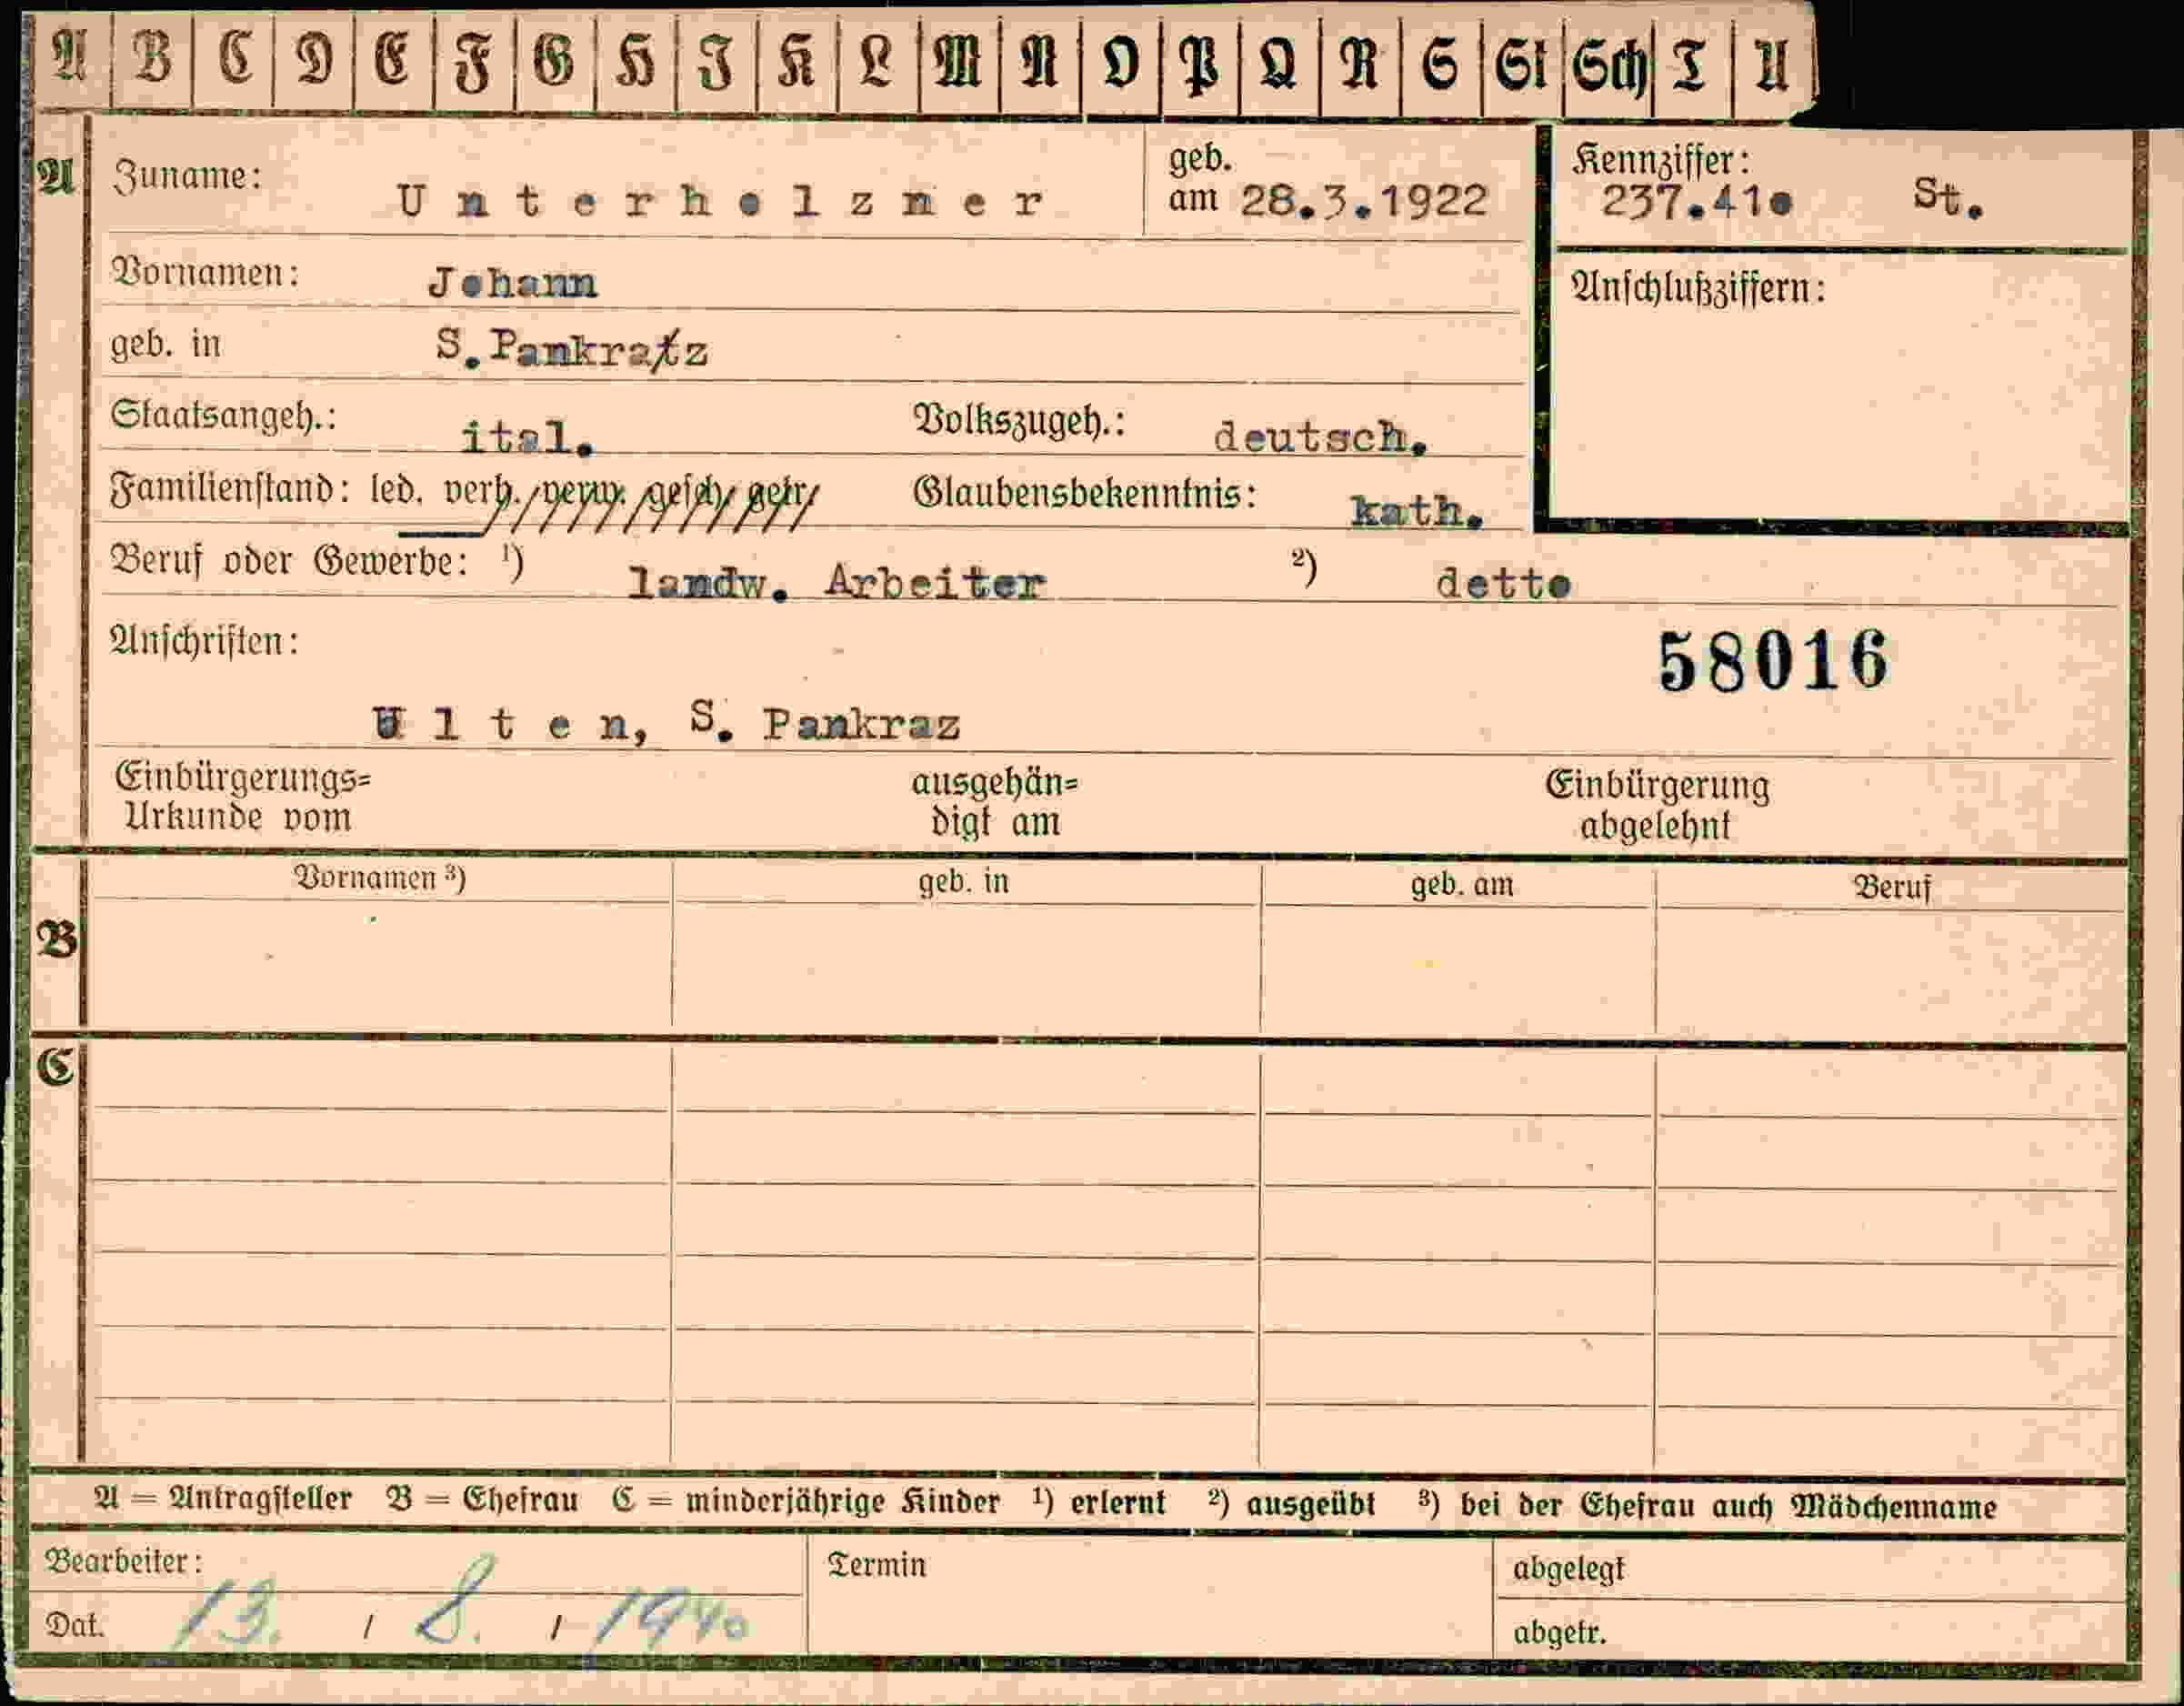 A B C D E F G H I K L M N O P Q R S St Sch T U
A Zuname: Unterholzner geb. am 28.3.1922 Kennziffer: 237.410 St.
Vornamen: Johann Anschlußziffern:
geb. in S.Pankratz
Staatsangeh.: ital. Volkszugeh.: deutsch.
Familienstand: led. verh. verw. gesch. getr. Glaubensbekenntnis: kath.
Beruf oder Gewerbe: ¹) landw. Arbeiter ²) detto
Anschriften: 58016
Ulten, S. Pankraz
Einbürgerungs= ausgehän= Einbürgerung
Urkunde vom digt am abgelehnt
Vornamen ³) geb. in geb. am Beruf
B
C
A = Antragsteller B = Ehefrau C = minderjährige Kinder ¹) erlernt ²) ausgeübt ³) bei der Ehefrau auch Mädchenname
Bearbeiter: Termin abgelegt
Dat. 13. / 8. / 1940 abgetr.